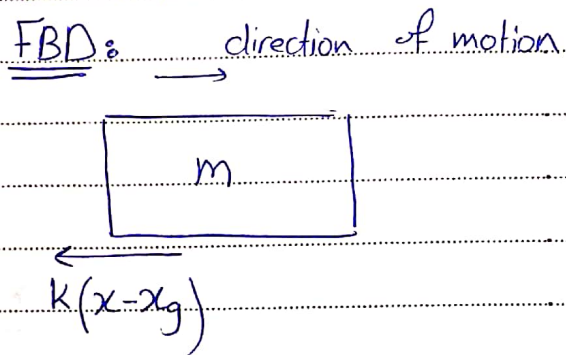 FBD: direction of motion.
m
k(x-xg)